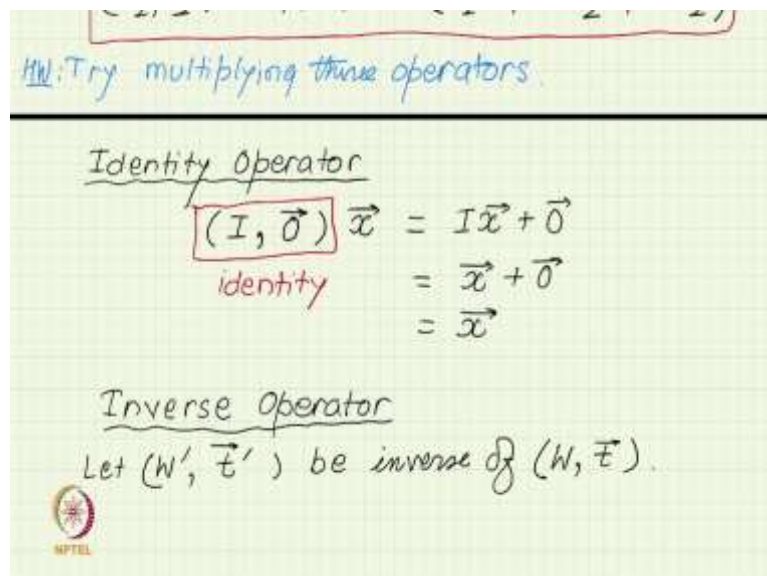 HW: Try multiplying three operators.
Identity Operator
(I, 0⃗) x⃗ = Ix⃗ + 0⃗
identity = x⃗ + 0⃗
= x⃗
Inverse Operator
Let (W′, t⃗′) be inverse of (W, t⃗).
NPTEL